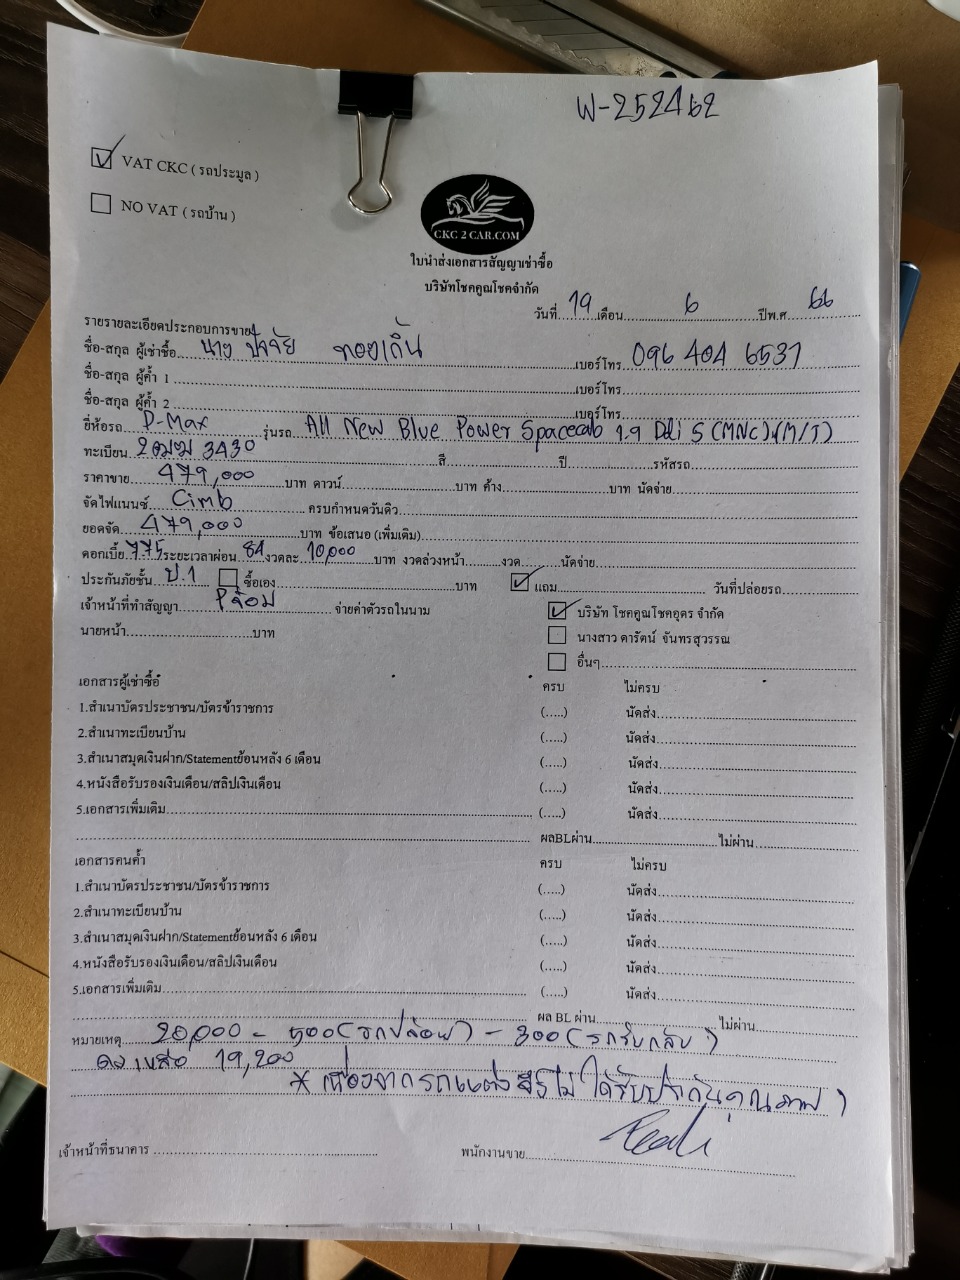 W-252462
VAT CKC ( รถประมูล )
NO VAT ( รถบ้าน )
CKC 2 CAR.COM
ใบนำส่งเอกสารสัญญาเช่าซื้อ
บริษัทโชคคูณโชคจำกัด
วันที่ 19 เดือน 6 ปีพ.ศ 66
รายรายละเอียดประกอบการขาย
ชื่อ-สกุล ผู้เช่าซื้อ นาง ปัจจัย เบอร์โทร 096 404 6531
ชื่อ-สกุล ผู้ค้ำ 1 เบอร์โทร
ชื่อ-สกุล ผู้ค้ำ 2 เบอร์โทร
ยี่ห้อรถ D-Max รุ่นรถ All New Blue Power Spacecab 1.9 Ddi S (MNC)(M/T)
ทะเบียน 2ฒฆ 3430 สี ปี รหัสรถ
ราคาขาย 479,000 บาท ดาวน์ บาท ค้าง บาท นัดจ่าย
จัดไฟแนนซ์ Cimb ครบกำหนดวันดิว
ยอดจัด 479,000 บาท ข้อเสนอ (เพิ่มเติม)
ดอกเบี้ย 7.75 ระยะเวลาผ่อน 84 งวดละ 10,000 บาท งวดล่วงหน้า งวด นัดจ่าย
ประกันภัยชั้น ป.1 ซื้อเอง บาท แถม วันที่ปล่อยรถ
เจ้าหน้าที่ทำสัญญา Pจ๋อม จ่ายค่าตัวรถในนาม บริษัท โชคคูณโชคอุดร จำกัด
นายหน้า บาท นางสาว ดารัตน์ จันทรสุวรรณ
อื่นๆ
เอกสารผู้เช่าซื้อ ครบ ไม่ครบ
1.สำเนาบัตรประชาชน/บัตรข้าราชการ (.....) นัดส่ง
2.สำเนาทะเบียนบ้าน (.....) นัดส่ง
3.สำเนาสมุดเงินฝาก/Statementย้อนหลัง 6 เดือน (.....) นัดส่ง
4.หนังสือรับรองเงินเดือน/สลิปเงินเดือน (.....) นัดส่ง
5.เอกสารเพิ่มเติม (.....) นัดส่ง
ผลBLผ่าน ไม่ผ่าน
เอกสารคนค้ำ ครบ ไม่ครบ
1.สำเนาบัตรประชาชน/บัตรข้าราชการ (.....) นัดส่ง
2.สำเนาทะเบียนบ้าน (.....) นัดส่ง
3.สำเนาสมุดเงินฝาก/Statementย้อนหลัง 6 เดือน (.....) นัดส่ง
4.หนังสือรับรองเงินเดือน/สลิปเงินเดือน (.....) นัดส่ง
5.เอกสารเพิ่มเติม (.....) นัดส่ง
ผล BL ผ่าน ไม่ผ่าน
หมายเหตุ 20,000 - 500 (รถปล่อย) - 300 (รถรับกลับ)
คงเหลือ 19,200
* เนื่องจากรถแต่ง ไม่ได้รับประกันคุณภาพ )
เจ้าหน้าที่ธนาคาร พนักงานขาย